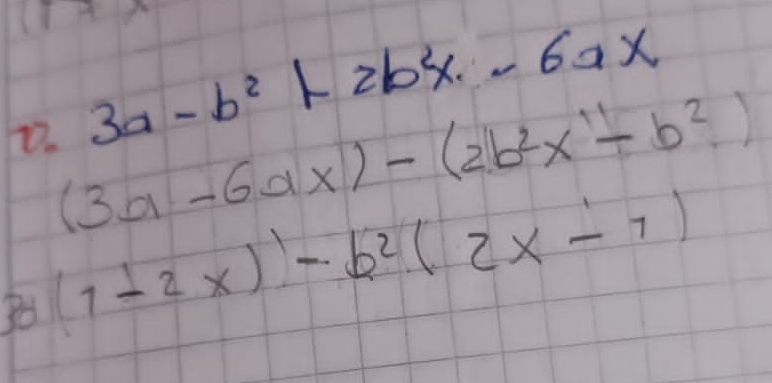 v. 3a - b² + 2b²x. - 6ax
(3a - 6ax) - (2b²x - b²)
3a(1 - 2x) - b²(2x - 1)